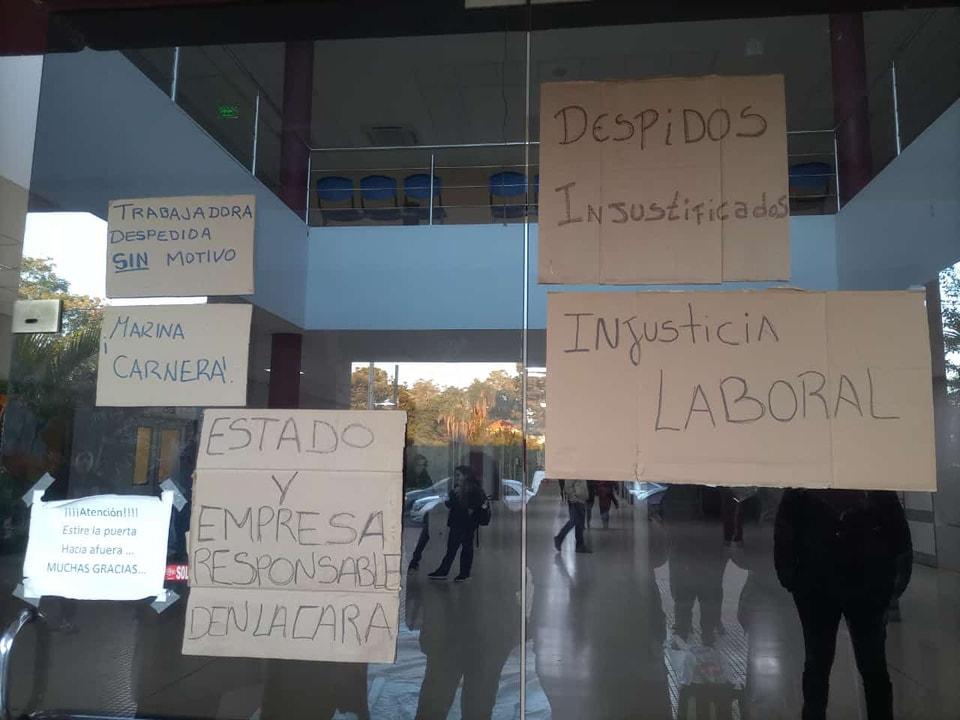 TRABAJADORA
DESPEDIDA
SIN MOTIVO
¡MARINA
CARNERA!.
ESTADO
Y
EMPRESA
RESPONSABLE
DEN LA CARA
¡¡¡¡Atención!!!!
Estire la puerta
Hacia afuera ...
MUCHAS GRACIAS...
SOL
DESPIDOS
INJUSTIFICADOS
INJUSTICIA
LABORAL